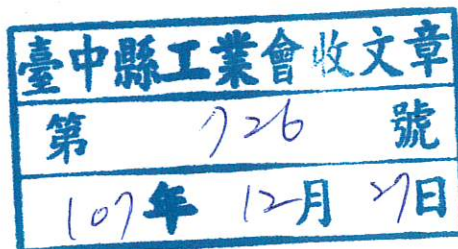 臺中縣工業會收文章
第 726 號
107年 12月 27日